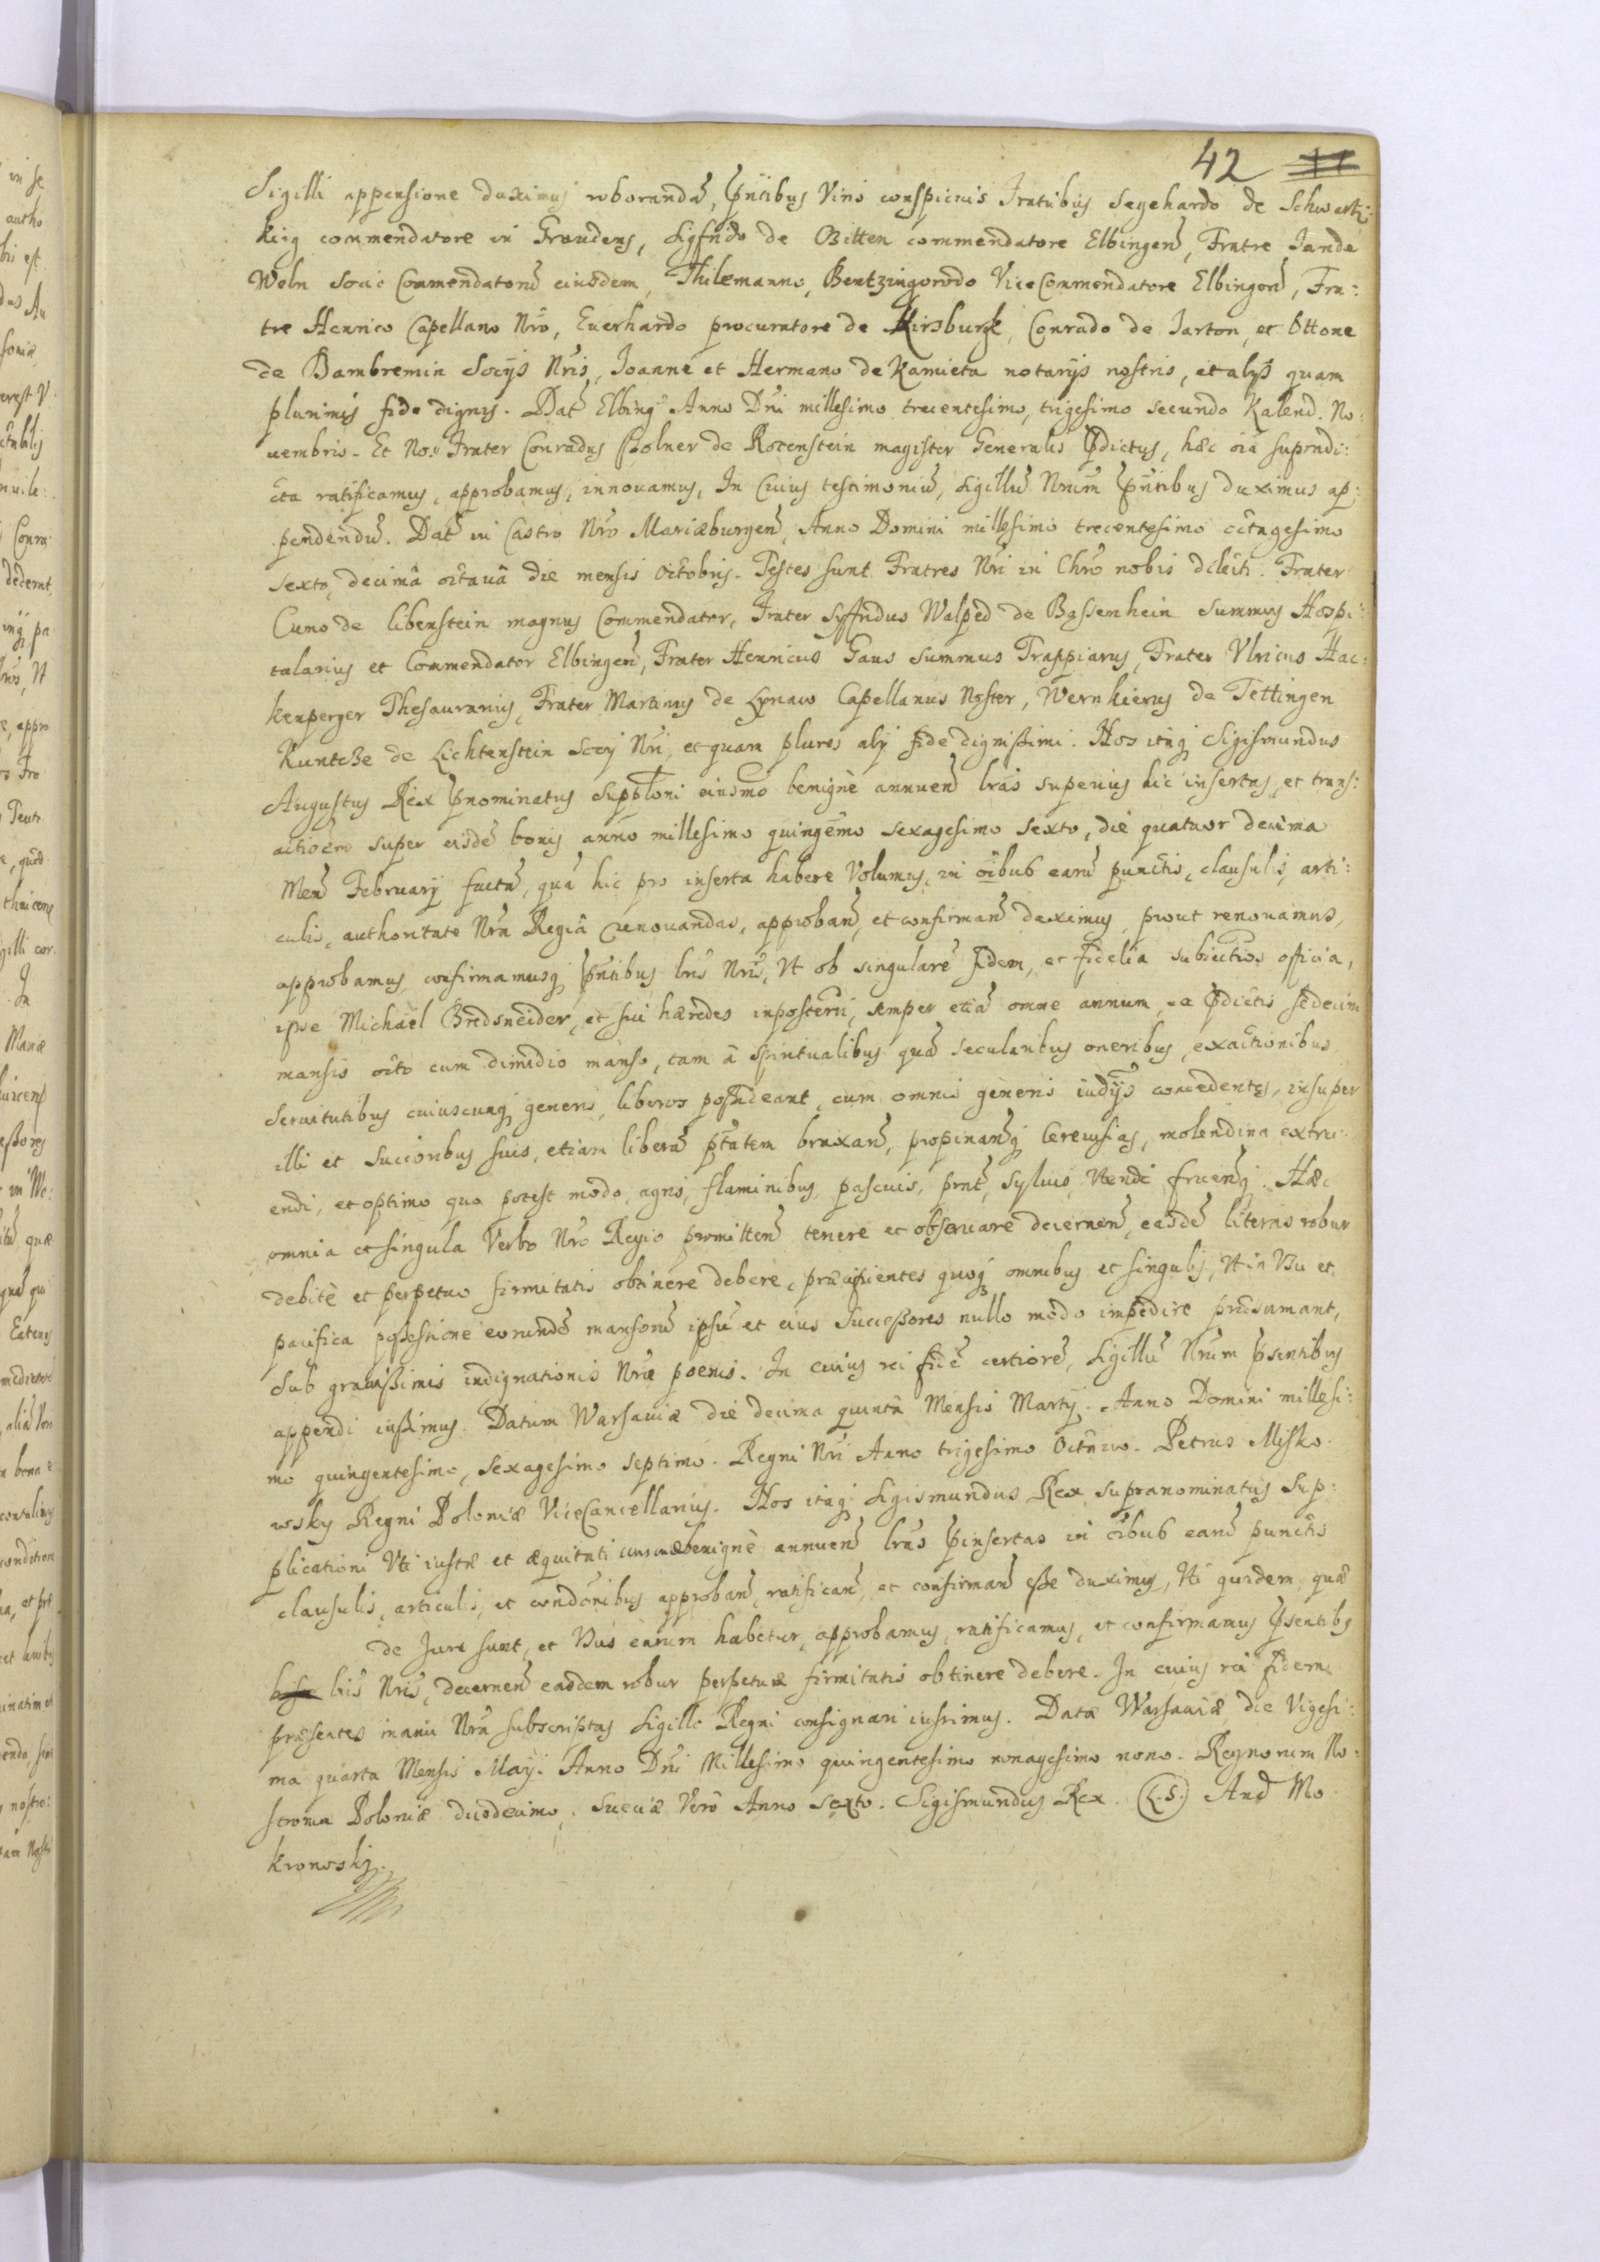 42
Sigilli appensione duximus roborandã, Pñtibus Viris conspicuis Fratribus Segehardo de Schwartz:
kirg commendatore in Graudens, Sigfrido de Bitten commendatore Elbingeñ, Fratre Jande
Weln Socio Commendatoris eiusdem, Thilemanno, Bentzingorodo ViceCommendatore Elbingeñ, Fra:
tre Henrico Capellano Nrõ, Euerhardo procuratore de Kirsburgk, Conrado de Jarton, et Ottone
de Bambremin Socijs Nrĩs, Joanne et Hermano de Kamieta notarijs nostris, et alijs quam
plurimis fide dignis. Dat Elbing Anno Dni millesimo trecentesimo, trigesimo secundo Kalend. No:
uembris. Et Nos Frater Conradus Czolner de Rotenstein magister Generalis Pdictus, hæc oiã supradi:
cta ratificamus, approbamus, innouamus, In Cuius testimoniũ, Sigillũ Nrũm Pñtibus duximus ap:
pendendũ. Dat in Castro Nrõ Mariæburgeñ, Anno Domini millesimo trecentesimo octuagesimo
sexto, decimâ octauâ die mensis Octobris. Testes sunt Fratres Nrĩ in Chrõ nobis dilecti. Frater
Cuno de libenstein magnus Commendator, Frater Syffridus Walped de Bassenhein Summus Hospi:
talarius et Commendator Elbingeñ, Frater Henricus Gans Summus Trappiarus, Frater Vlricus Hac:
kenperger Thesaurarius, Frater Martinus de Lynaw Capellanus Noster, Wernhierus de Tettingen
Kuntcze de Lichtenstein Socij Nrĩ, et quam plures alij fide dignissimi. Nos itaq Sigismundus
Augustus Rex Pnominatus Supplõni eiusmõ benignè annueñ lrãs superius hic insertas, et trans:
actioẽm super eisdẽ bonis anno millesimo quingẽmo sexagesimo sexto, die quatuor decima
Meñ February factã, quã hic pro inserta habere Volumus, in oĩbus earũ punctis, clausulis, arti:
culis, authoritate Nrã Regiâ renouandas, approbañ, et confirmañ duximus, prout renouamus,
approbamus, confirmamusq Pñtibus lrĩs Nrĩs, Vt ob singularẽ fidem, et fidelia subiectiõs officia,
ipse Michaël Bredsneider, et sui hæredes inposterũ, semper etiã omne annum, ea Pdictis sedecim
mansis octo cum dimidio manso, tam â spiritualibus quã secularibus oneribus, exactionibus
Seruitutibus cuiuscunq generis, liberos possideant, cum omnis generis iudijs concedentes, insuper
illi et Succoribus suis, etiam liberã ptãtem braxañ, propinañq Ceruisias, molendina extru:
endi, et optimo quo potest modo, agris, fluminibus, pascuis, prat, Syluis, Vtendi fruenq. Hæc
omnia et singula Verbo Nrõ Regio promitteñ tenere et obseruare decerneñ, easdẽ literas robur
debitè et perpetuo firmitatis obtinere debere, præcipientes quoq omnibus et singulis, Vt in Vsu et
pacifica possessione eorundẽ mansorũ ipsũ et eius Successores nullo modo impedire præsumant,
Sub grauissimis indignationis Nræ poenis. In cuius rei fidẽ certiorẽ, Sigillũ Nrũm Psentibus
appendi iussimus. Datum Warsauiæ die decima quinta Mensis Martij. Anno Domini millesi:
mo quingentesimo, Sexagesimo septimo. Regni Nrĩ Anno trigesimo Octauo. Petrus Misko:
wsky Regni Poloniæ ViceCancellarius. Nos itaq Sigismundus Rex supranominatus Sup:
plicationi Vti iustæ et æquitati benignè annueñ lrãs Pinsertas in oĩbus earũ punctis
clausulis, articulis, et condõnibus approbañ, ratificañ, et confirmañ esse duximus, Vti quidem quã
de Jure sunt, et Vsus earum habetur, approbamus, ratificamus, et confirmamus Psentibs
lrĩs Nrĩs, decerneñ easdem robur perpetuæ firmitatis obtinere debere. In cuius rei fidem
præsentes manu Nrã subscriptas Sigillo Regni consignari iussimus. Data Warsauiæ die Vigesi:
ma quarta Mensis May. Anno Dni Millesimo quingentesimo nonagesimo nono. Regnorum No:
strorum Poloniæ duodecimo, Sueciæ Verò Anno Sexto. Sigismundus Rex. (L.S.) And Mo:
kronoski.